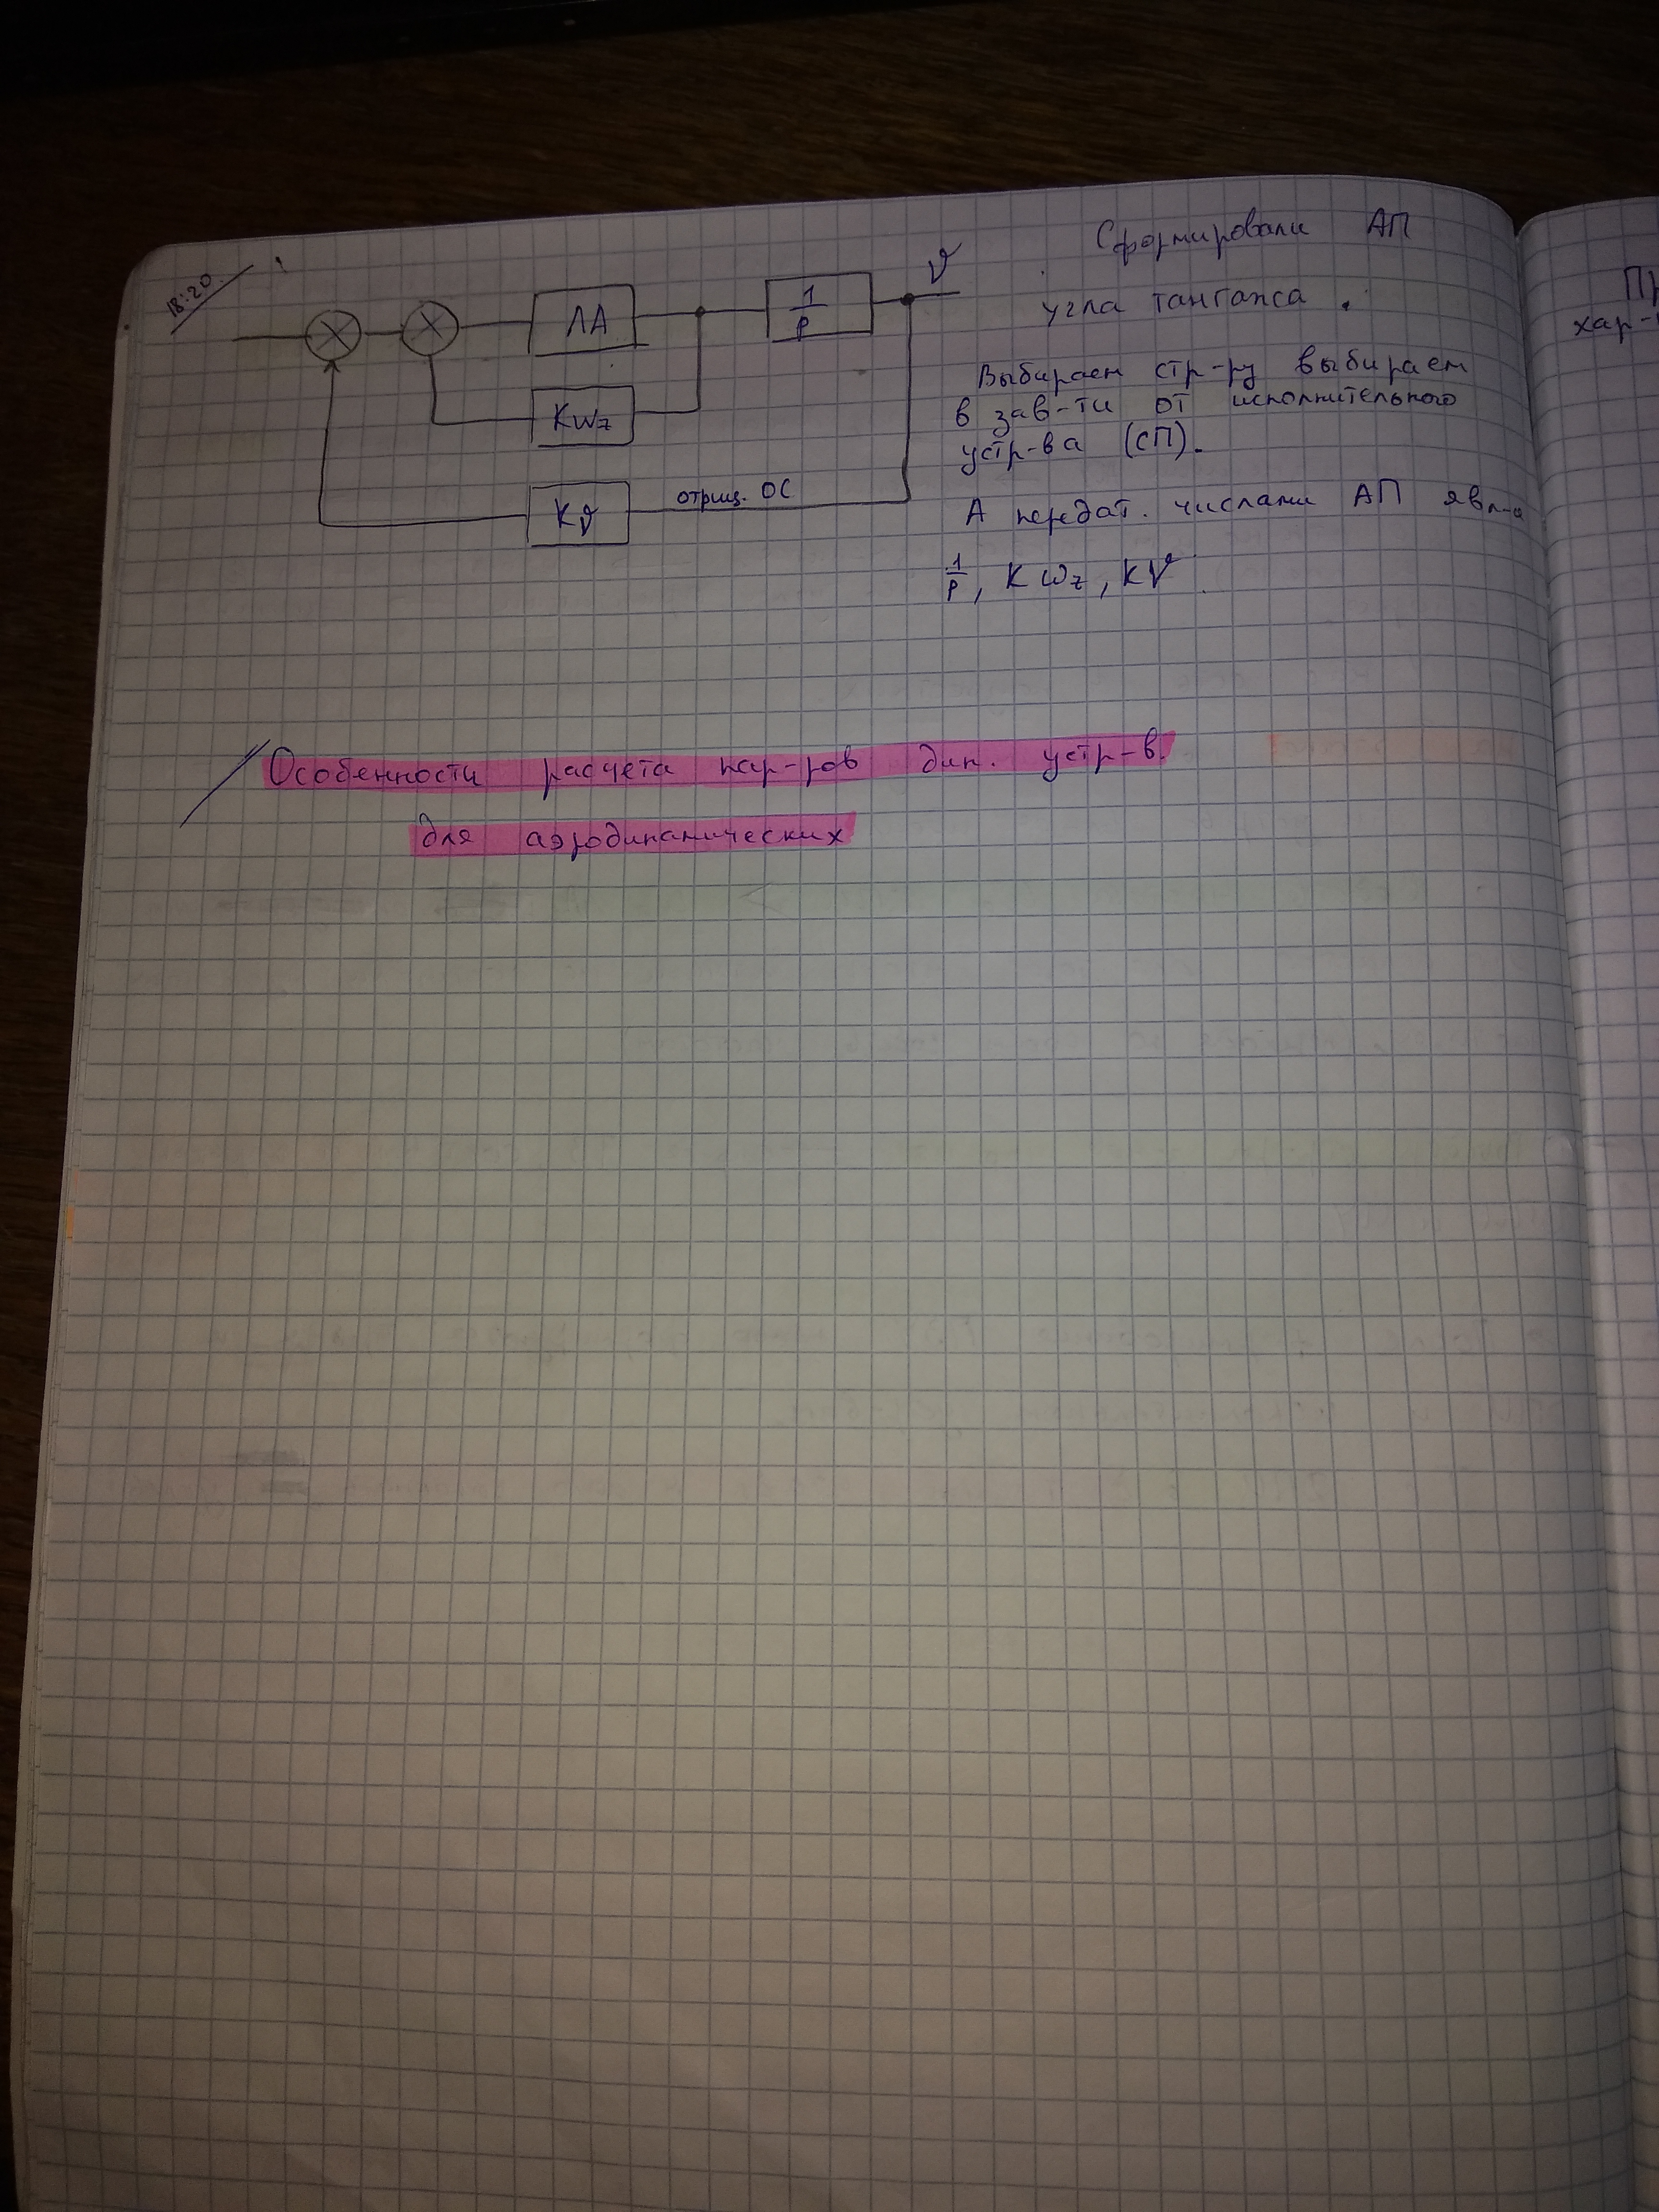 18:20
ЛА
1/p
ϑ
Kωz
Kϑ
отриц. ОС
Сформировали АП
угла тангажа.
Выбираем стр-ру выбираем
в зав-ти от исполнительного
устр-ва (СП).
А передат. числами АП явл-я
1/p, Kωz, Kϑ
Особенности расчета пар-ров дин. устр-в.
для аэродинамических
хар-